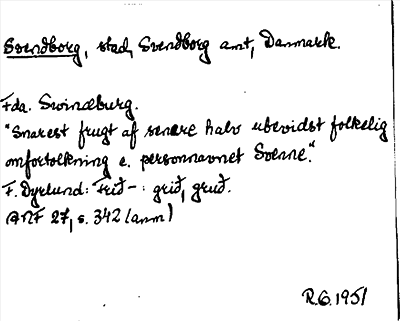 Svendborg, stad, Svendborg amt, Danmark.
Fda. Swineburg.
"Snarest frugt af senere halv ubevidst folkelig
omfortolkning e. personnavnet Svenne."
F. Dyrlund: Frið-: grið, gruð.
ANF 27, s. 342 (anm)
R.G. 1951